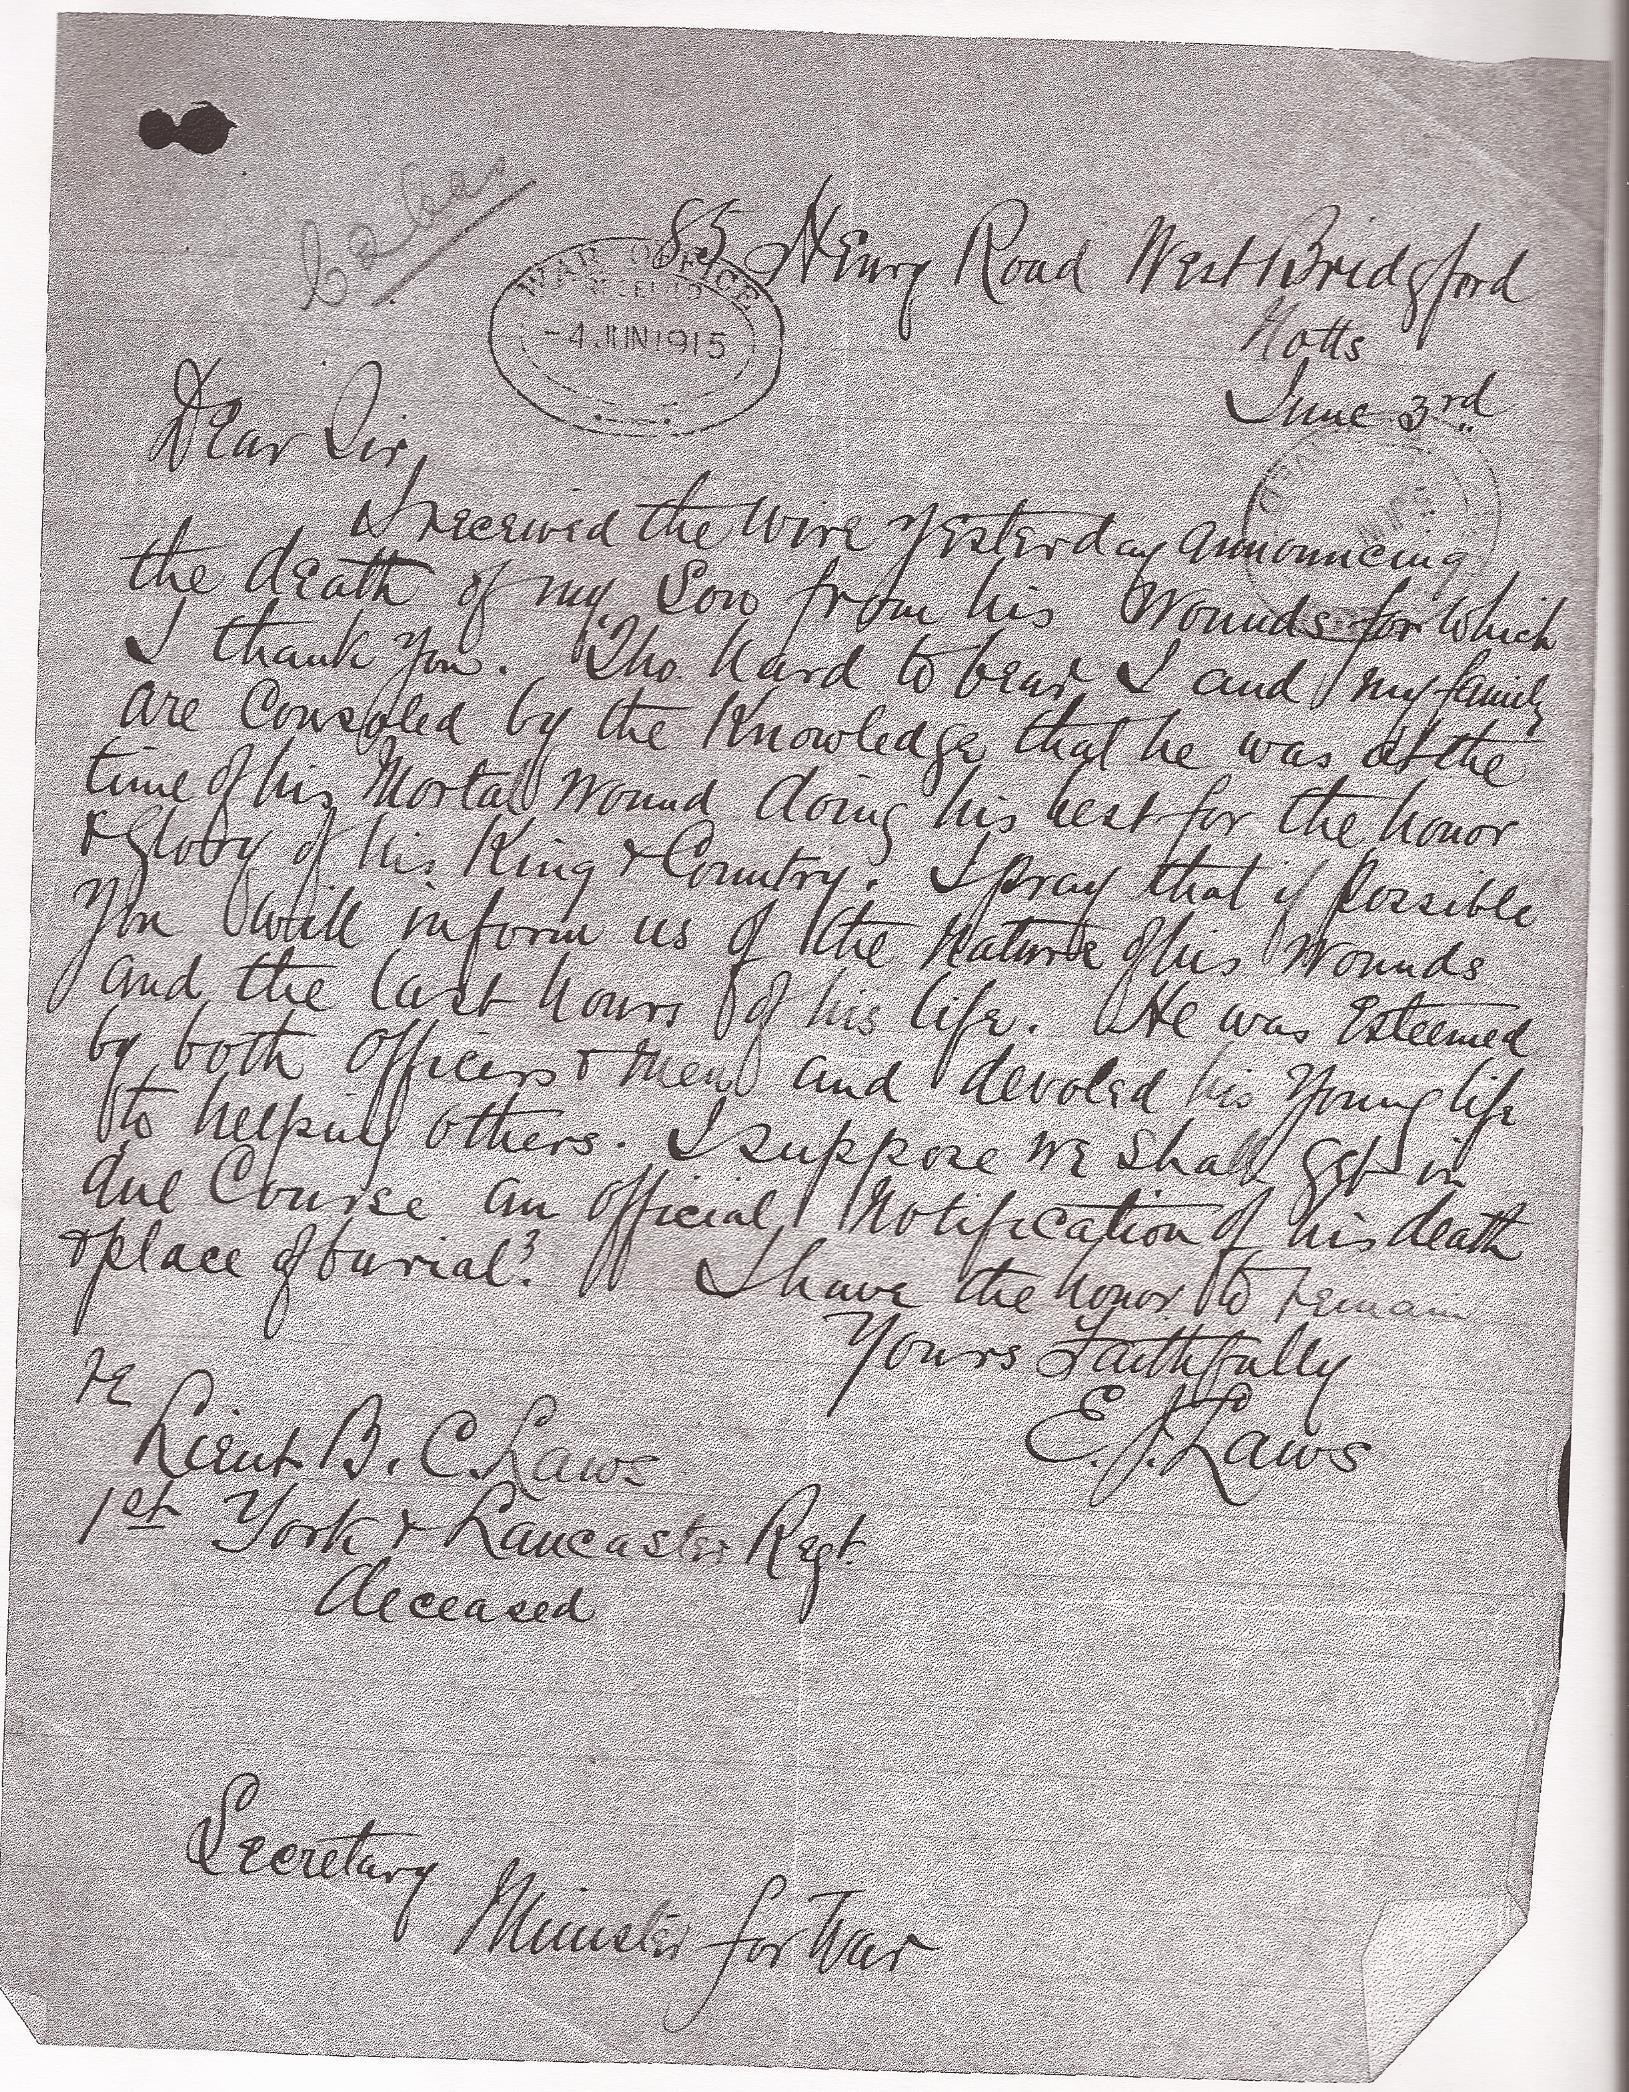 85 Henry Road West Bridgford
Notts
June 3rd
WAR OFFICE
-4 JUN 1915
Dear Sir,
I received the wire yesterday announcing
the death of my Son from his Wounds for which
I thank you. Tho hard to bear I and my family
are Consoled by the Knowledge that he was at the
time of his Mortal Wound doing his best for the honor
& glory of his King & Country. I pray that if possible
you will inform us of the Nature of his Wounds
and the last hours of his life. He was Esteemed
by both Officers & Men and devoted his Young life
to helping others. I suppose we shall get in
due Course an official Notification of his death
& place of burial? I have the honor to remain
Yours Faithfully
E. J. Laws
re
Lieut B. C. Laws
1st York & Lancaster Regt.
deceased
Secretary
Minister for War